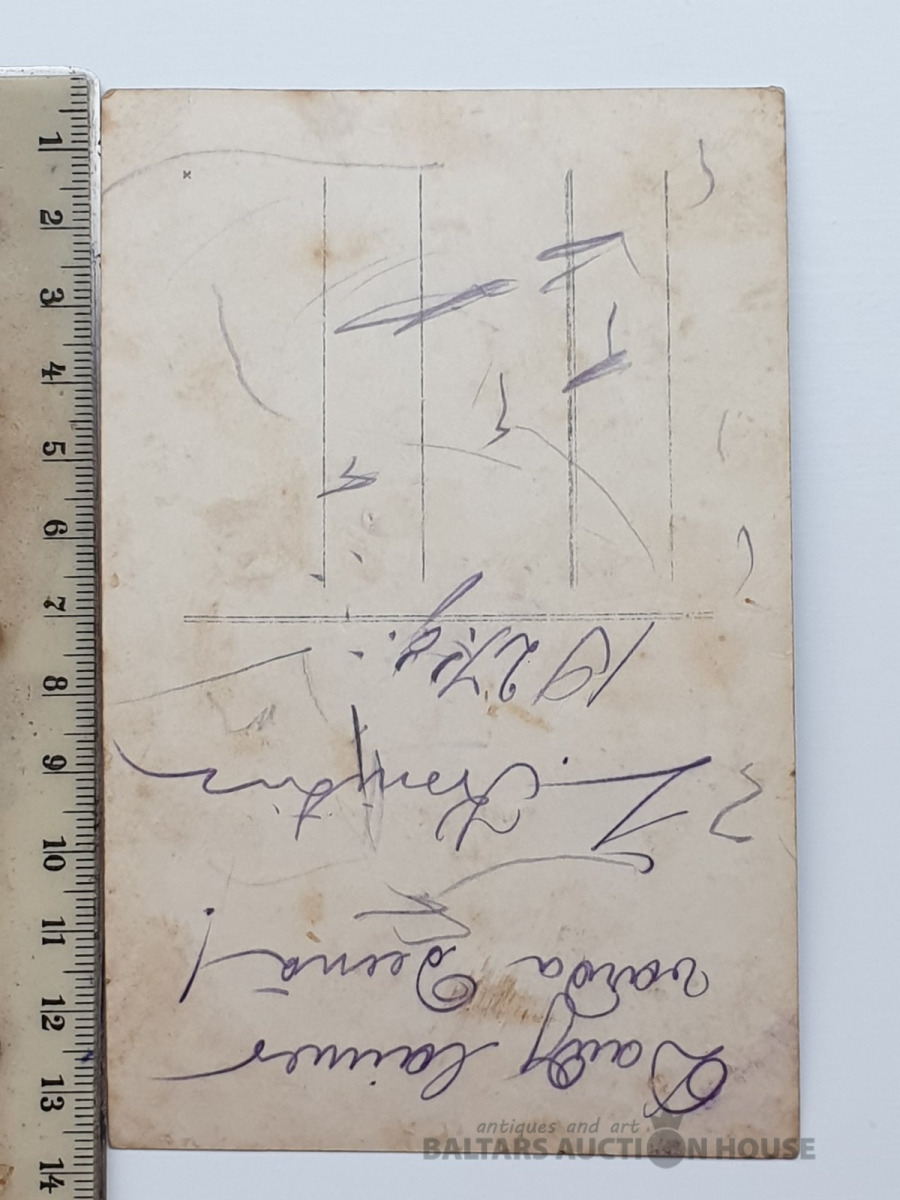 Daudz laimes
varda Deenā!
1927.g.
1
2
3
4
5
6
7
8
9
10
11
12
13
14
antiques and art
BALTARS AUCTION HOUSE